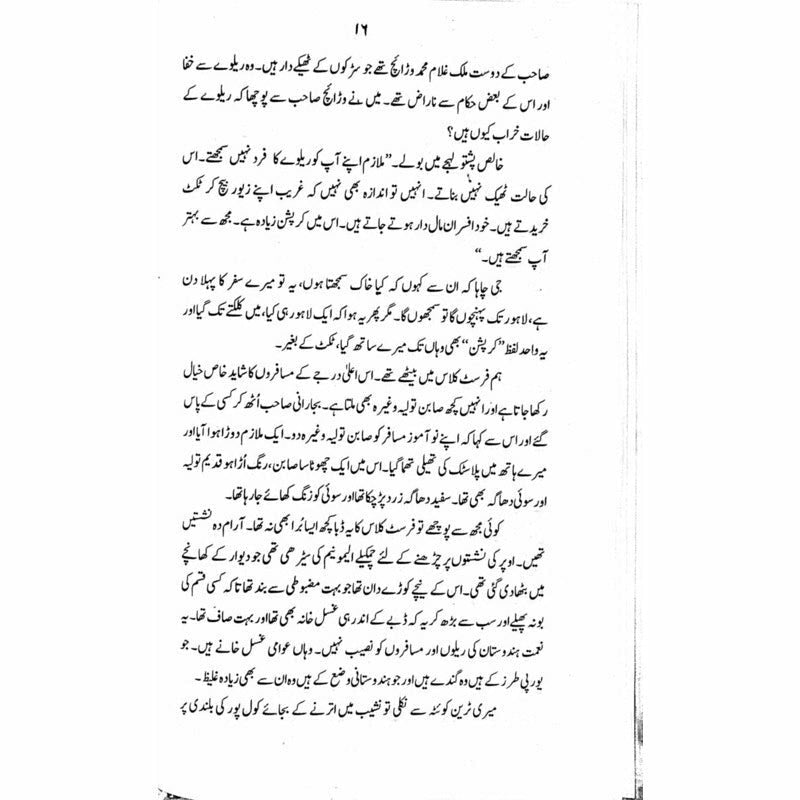 ۱۶
صاحب کے دوست ملک غلام محمد وڑائچ تھے جو سڑکوں کے ٹھیکے دار ہیں۔ وہ ریلوے سے خفا
اور اس کے بعض حکام سے ناراض تھے۔ میں نے وڑائچ صاحب سے پوچھا کہ ریلوے کے
حالات خراب کیوں ہیں؟
خالص پشتو لہجے میں بولے۔ ”ملازم اپنے آپ کو ریلوے کا فرد نہیں سمجھتے۔ اس
کی حالت ٹھیک نہیں بناتے۔ انہیں تو اندازہ بھی نہیں کہ غریب اپنے زیور بیچ کر ٹکٹ
خریدتے ہیں۔ خود افسران مال دار ہوتے جاتے ہیں۔ اس میں کرپشن زیادہ ہے۔ مجھ سے بہتر
آپ سمجھتے ہیں۔“
جی چاہا کہ ان سے کہوں کہ کیا خاک سمجھتا ہوں، یہ تو میرے سفر کا پہلا دن
ہے، لاہور تک پہنچوں گا تو سمجھوں گا۔ مگر پھر یہ ہوا کہ ایک لاہور ہی کیا، میں کلکتے تک گیا اور
یہ واحد لفظ ”کرپشن“ بھی وہاں تک میرے ساتھ گیا، ٹکٹ کے بغیر۔
ہم فرسٹ کلاس میں بیٹھے تھے۔ اس اعلیٰ درجے کے مسافروں کا شاید خاص خیال
رکھا جاتا ہے اور انہیں کچھ صابن تولیہ وغیرہ بھی ملتا ہے۔ بجارانی صاحب اُٹھ کر کسی کے پاس
گئے اور اس سے کہا کہ اپنے نو آموز مسافر کو صابن تولیہ وغیرہ دو۔ ایک ملازم دوڑا ہوا آیا اور
میرے ہاتھ میں پلاسٹک کی تھیلی تھما گیا۔ اس میں ایک چھوٹا سا صابن، رنگ اُڑا ہو قدیم تولیہ
اور سوئی دھاگہ بھی تھا۔ سفید دھاگہ زرد پڑ چکا تھا اور سوئی کو زنگ کھائے جا رہا تھا۔
کوئی مجھ سے پوچھے تو فرسٹ کلاس کا یہ ڈبا کچھ ایسا بُرا بھی نہ تھا۔ آرام دہ نشستیں
تھیں۔ اوپر کی نشستوں پر چڑھنے کے لئے چمکیلے الیمونیم کی سیڑھی تھی جو دیوار کے کھانچے
میں بٹھا دی گئی تھی۔ اس کے نیچے کوڑے دان تھا جو بہت مضبوطی سے بند تھا تاکہ کسی قسم کی
بو نہ پھیلے اور سب سے بڑھ کر یہ کہ ڈبے کے اندر ہی غسل خانہ بھی تھا اور بہت صاف تھا۔ یہ
نعمت ہندوستان کی ریلوں اور مسافروں کو نصیب نہیں۔ وہاں عوامی غسل خانے ہیں۔ جو
یورپی طرز کے ہیں وہ گندے ہیں اور جو ہندوستانی وضع کے ہیں وہ ان سے بھی زیادہ غلیظ۔
میری ٹرین کوئٹہ سے نکلی تو نشیب میں اترنے کے بجائے کول پور کی بلندی پر